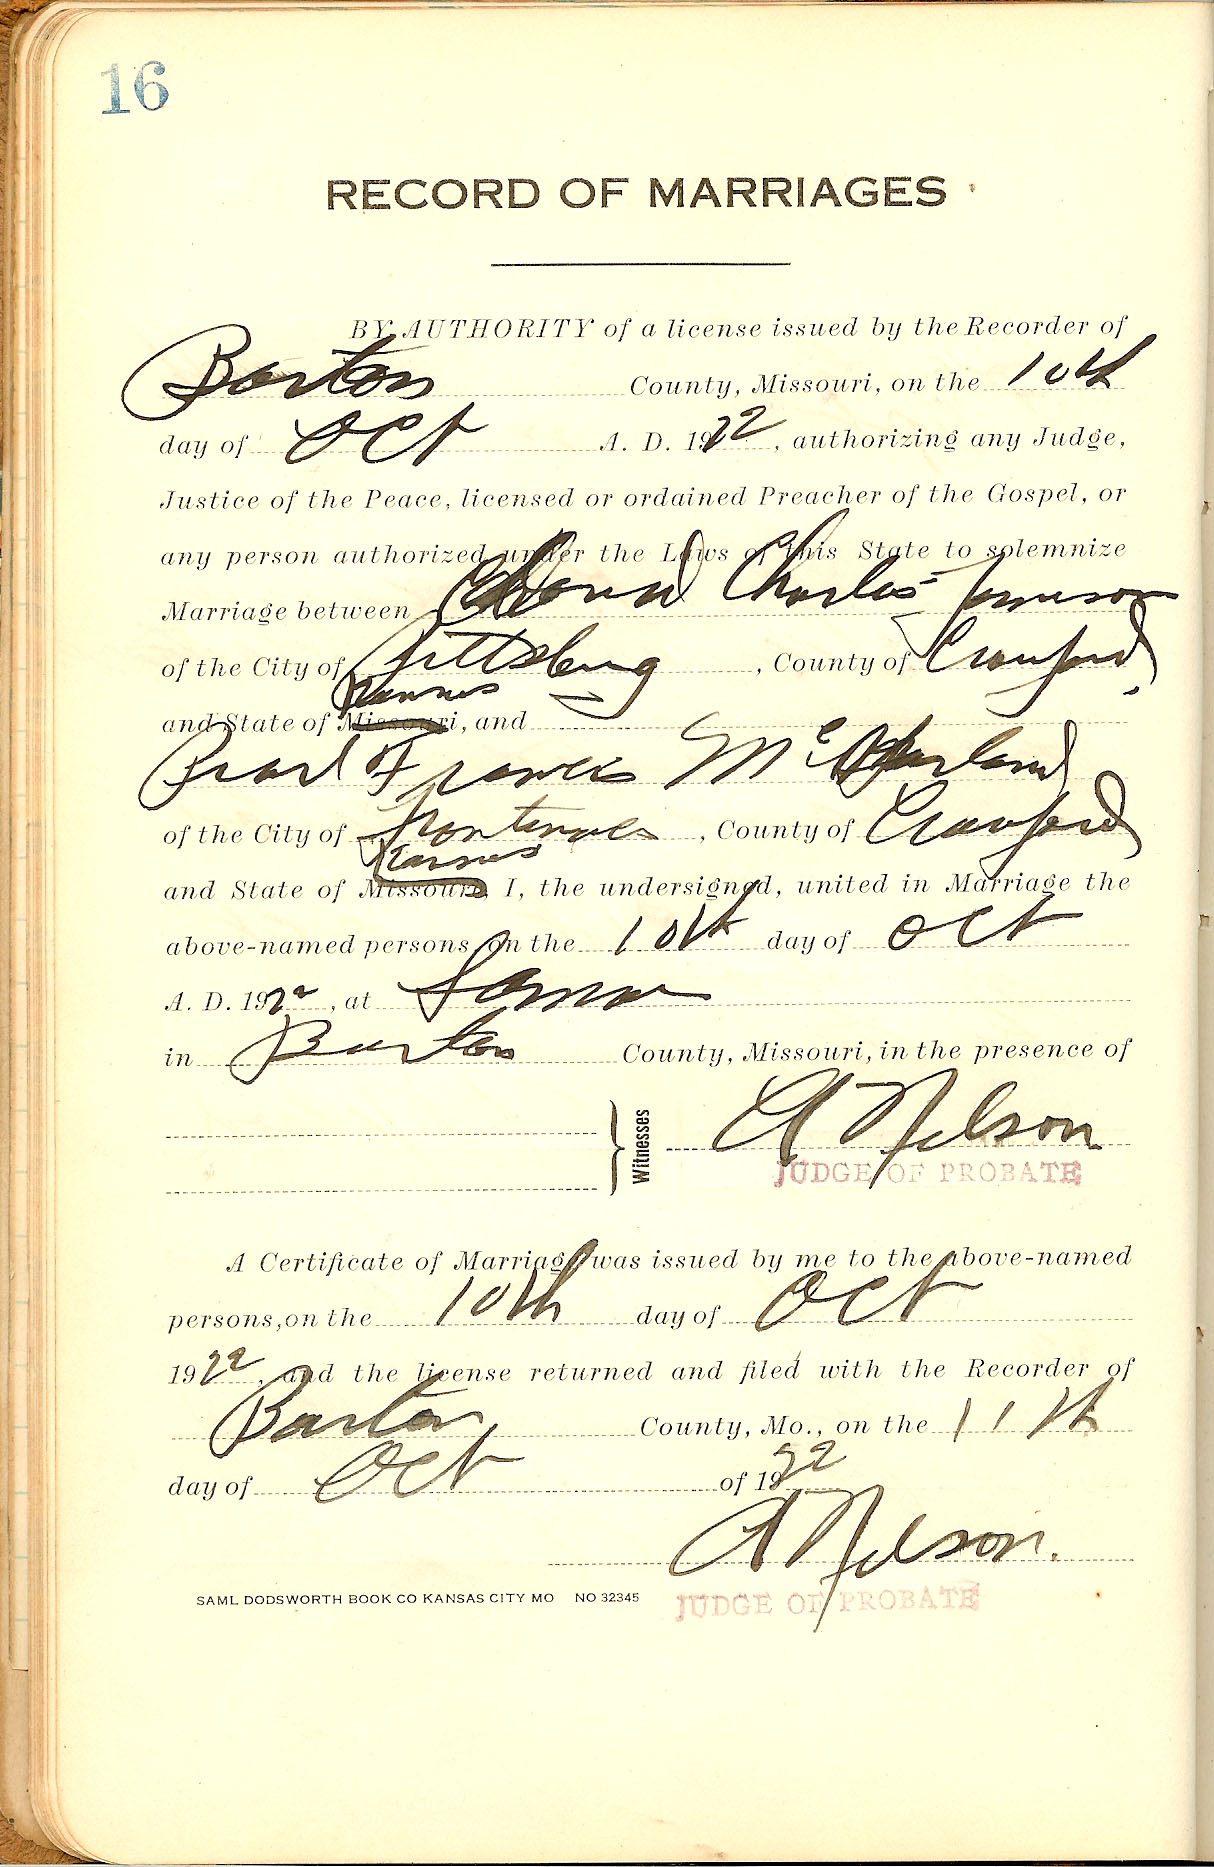 16
RECORD OF MARRIAGES
BY AUTHORITY of a license issued by the Recorder of
Barton County, Missouri, on the 10th
day of Oct A. D. 1922, authorizing any Judge,
Justice of the Peace, licensed or ordained Preacher of the Gospel, or
any person authorized under the Laws of this State to solemnize
Marriage between Charles Jameson
of the City of Pittsburg, County of Crawford,
Kansas
and State of Missouri, and
Pearl Frances McFarland
of the City of Frontenac, County of Crawford
Kansas
and State of Missouri, I, the undersigned, united in Marriage the
above-named persons, on the 10th day of Oct
A. D. 1922, at Lamar
in Barton County, Missouri, in the presence of
Witnesses A Nelson
JUDGE OF PROBATE
A Certificate of Marriage was issued by me to the above-named
persons, on the 10th day of Oct
1922, and the license returned and filed with the Recorder of
Barton County, Mo., on the 11th
day of Oct of 1922
A Nelson.
SAML DODSWORTH BOOK CO KANSAS CITY MO NO 32345 JUDGE OF PROBATE